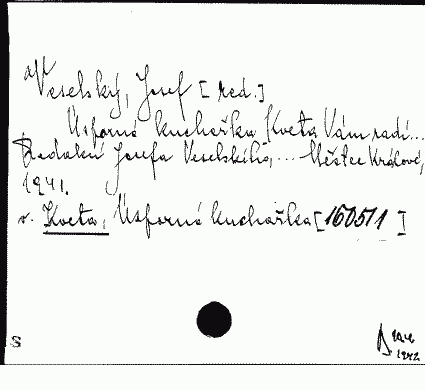 Veselský, Josef [red.]
Úsporná kuchařka Květa Vám radí...
Redakcí Josefa Veselského,... Městec Králové,
1941.
v. Květa, Úsporná kuchařka [16051]
S
1942